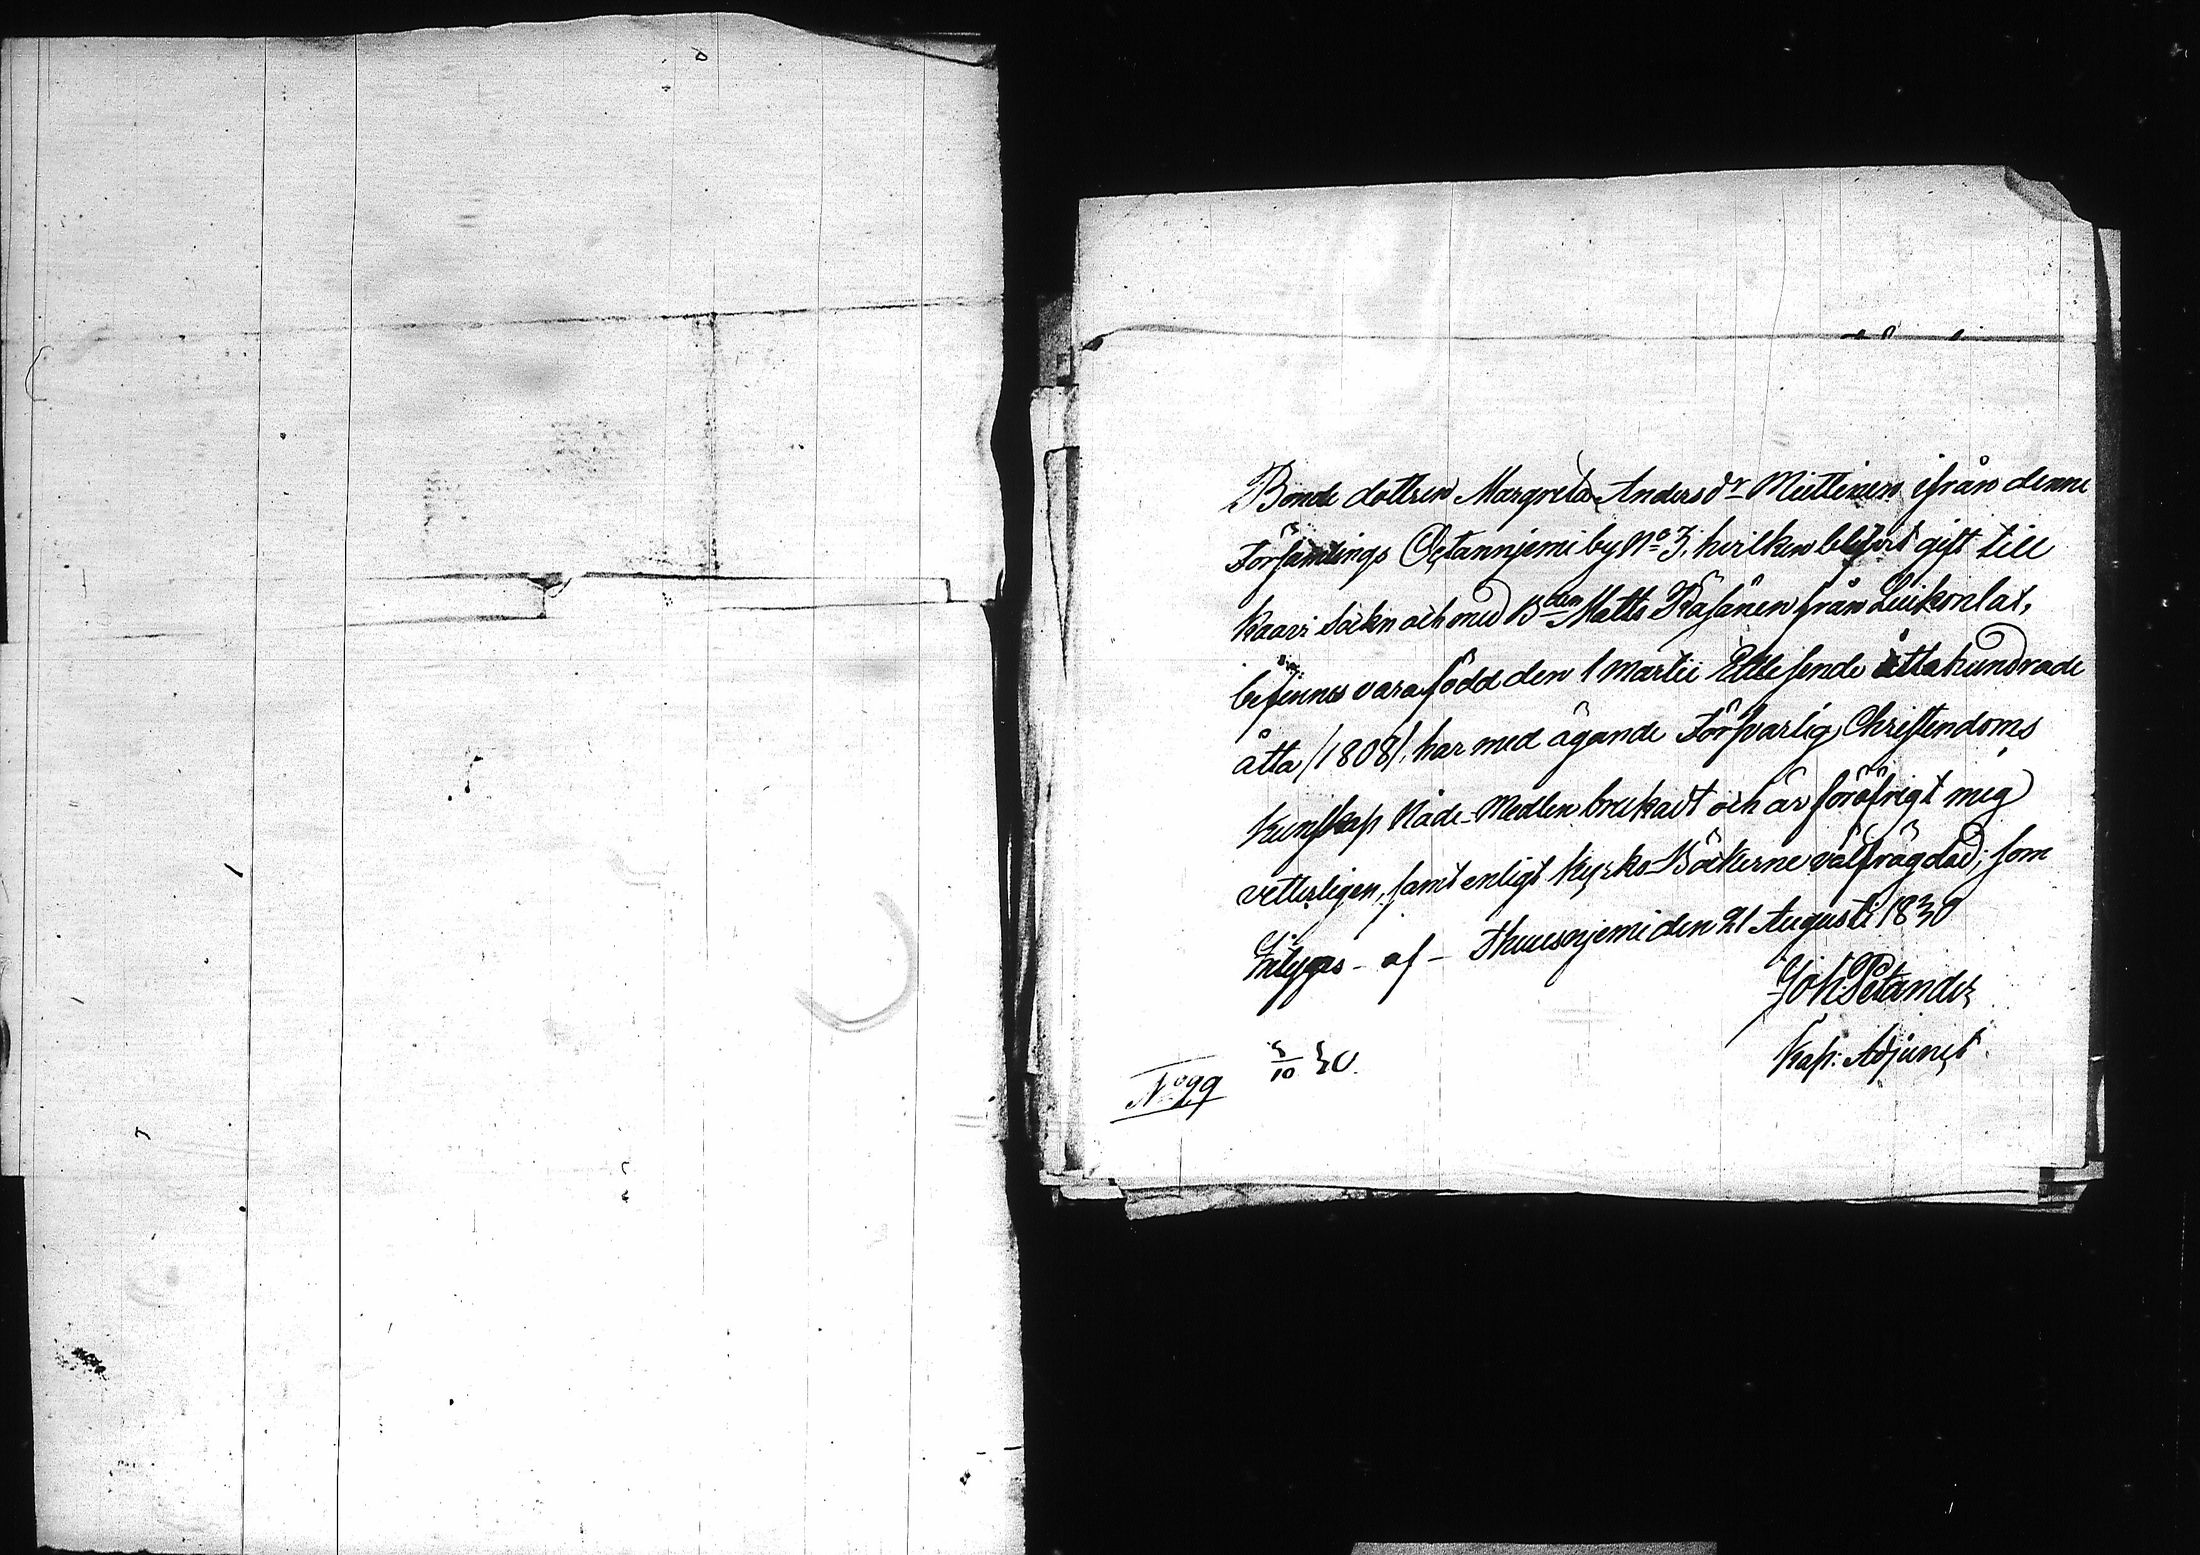 Bonde dottren Margreta Andersdr Miettinen ifrån denne
Församlings Oetannjemi by No 3, hvilken blifvit gift till
Kaavi Sockn och med Bden Matts Räsänen från Luikonlax,
befinnes vara född den 1 Martii Ettusende åtta hundrade
åtta /1808/, har med ägande Försvarlig Christendoms
Kunskap Nåde-Medlen brukadt och är föröfrigt mig
vetterligen, samt enligt Kyrko-Böckerne välfrägdad; som
Intygas - af - Thuusnjemi den 21 Augusti 1830
Joh. Petander
Kap: Adjunct.
5/10 30.
No 99